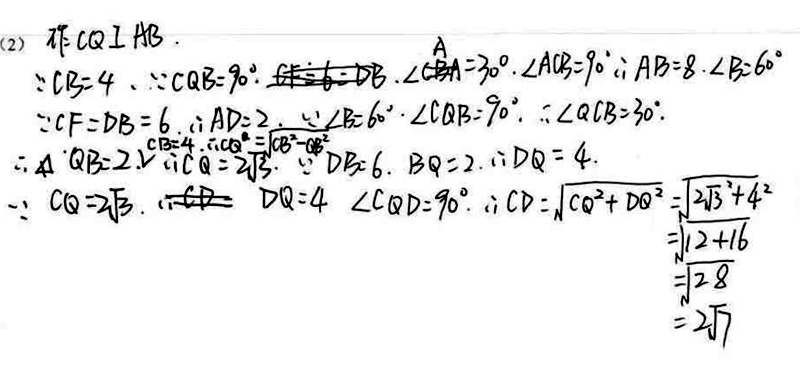 (2) 作CQ⊥AB.
∵CB=4. ∵∠CQB=90°. ∠A=30°. ∠ACB=90° ∴AB=8. ∠B=60°
∵CF=DB=6. ∴AD=2. ∵∠B=60°. ∠CQB=90°. ∴∠QCB=30°.
CB=4. ∴CQ=√CB²-QB²
∴QB=2. ∴CQ=2√3. ∵DB=6. BQ=2. ∴DQ=4.
∵CQ=2√3. DQ=4 ∠CQD=90°. ∴CD=√CQ²+DQ² =√2√3²+4²
=√12+16
=√28
=2√7